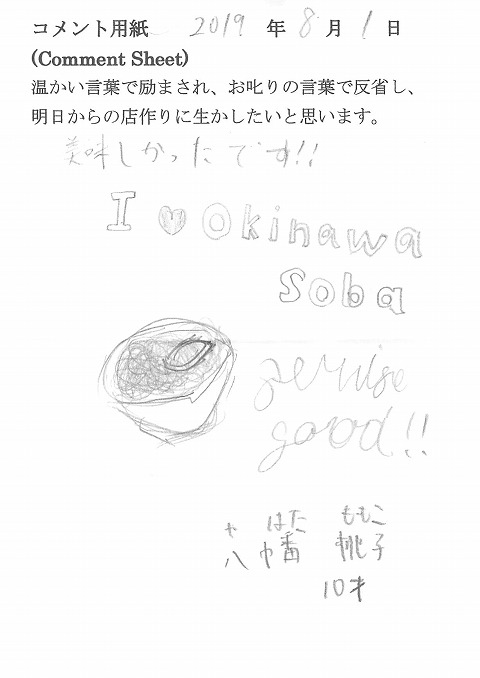 コメント用紙 2019 年 8 月 1 日
(Comment Sheet)
温かい言葉で励まされ、お叱りの言葉で反省し、
明日からの店作りに生かしたいと思います。
美味しかったです!!
I ♡ Okinawa
Soba
good!!
や はた ももこ
八幡 桃子
10才